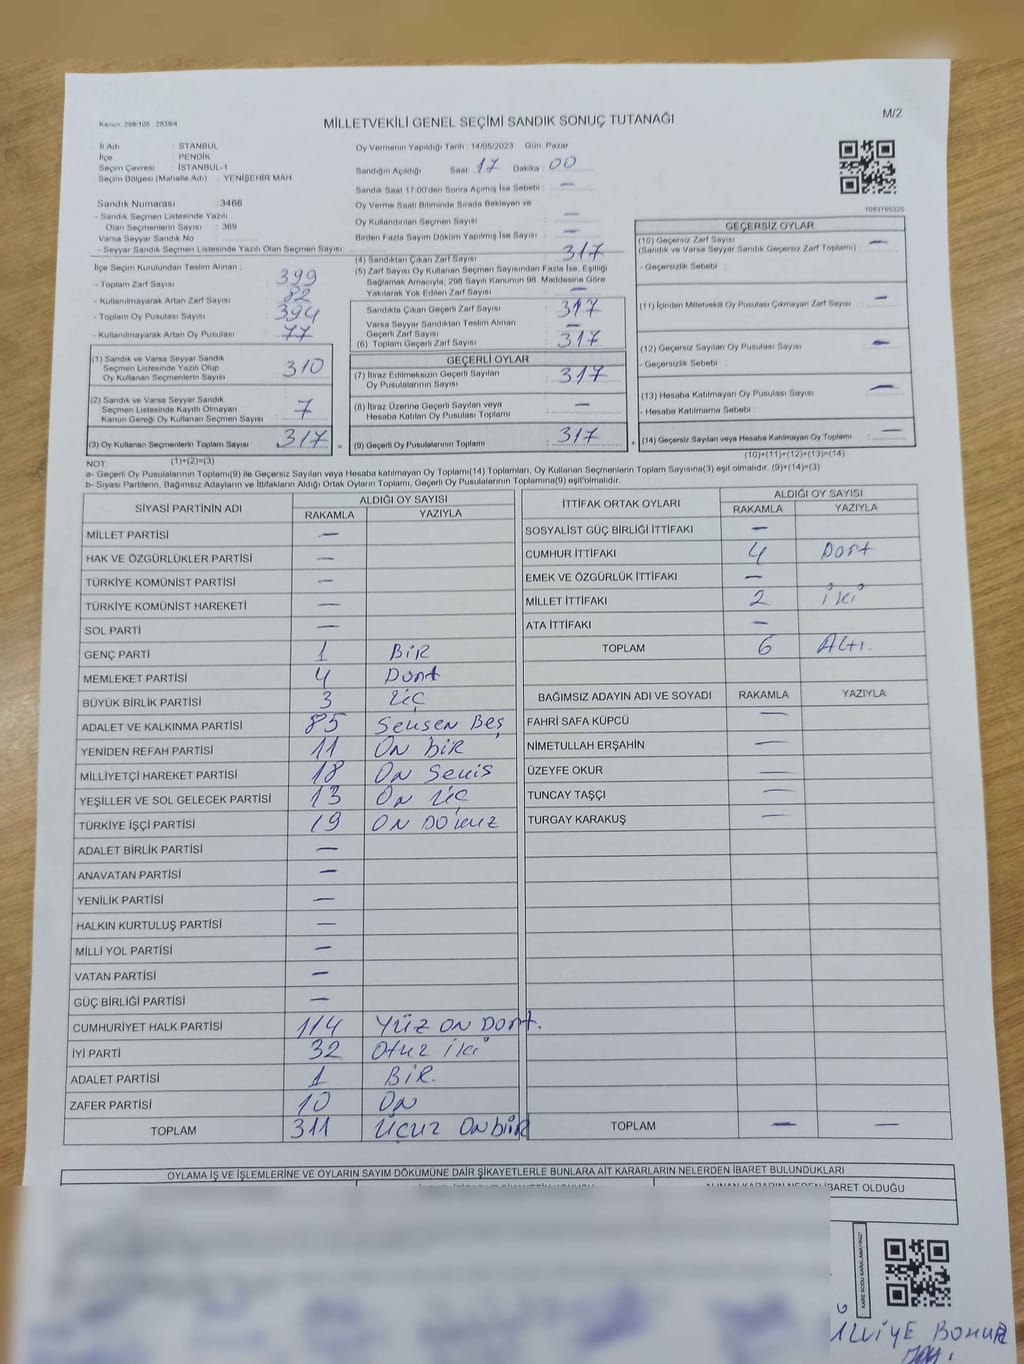 Kanun: 298/105 , 2839/4
MİLLETVEKİLİ GENEL SEÇİMİ SANDIK SONUÇ TUTANAĞI
M/2
İl Adı : İSTANBUL
İlçe : PENDİK
Seçim Çevresi : İSTANBUL-1
Seçim Bölgesi (Mahalle Adı) : YENİŞEHİR MAH.
Oy Vermenin Yapıldığı Tarih : 14/05/2023 Gün: Pazar
Sandığın Açıldığı Saat : 17 Dakika : 00
Sandık Saat 17:00'den Sonra Açımış İse Sebebi : —
Oy Verme Saati Bitiminde Sırada Bekleyen ve
Oy Kullandırılan Seçmen Sayısı : —
Birden Fazla Sayım Döküm Yapılmış İse Sayısı : —
1083785325
Sandık Numarası : 3466
- Sandık Seçmen Listesinde Yazılı
Olan Seçmenlerin Sayısı : 369
Varsa Seyyar Sandık No :
- Seyyar Sandık Seçmen Listesinde Yazılı Olan Seçmen Sayısı:
İlçe Seçim Kurulundan Teslim Alınan :
- Toplam Zarf Sayısı : 399
- Kullanılmayarak Artan Zarf Sayısı : 82
- Toplam Oy Pusulası Sayısı : 394
- Kullanılmayarak Artan Oy Pusulası : 77
(1) Sandık ve Varsa Seyyar Sandık
Seçmen Listesinde Yazılı Olup
Oy Kullanan Seçmenlerin Sayısı : 310
(2) Sandık ve Varsa Seyyar Sandık
Seçmen Listesinde Kayıtlı Olmayan
Kanun Gereği Oy Kullanan Seçmen Sayısı : 7
(3) Oy Kullanan Seçmenlerin Toplam Sayısı : 317 =
(1)+(2)=(3)
(4) Sandıktan Çıkan Zarf Sayısı : 317
(5) Zarf Sayısı Oy Kullanan Seçmen Sayısından Fazla İse, Eşitliği
Sağlamak Amacıyla; 298 Sayılı Kanunun 98. Maddesine Göre
Yakılarak Yok Edilen Zarf Sayısı : —
Sandıkta Çıkan Geçerli Zarf Sayısı : 317
Varsa Seyyar Sandıktan Teslim Alınan
Geçerli Zarf Sayısı : —
(6) Toplam Geçerli Zarf Sayısı : 317
GEÇERLİ OYLAR
(7) İtiraz Edilmeksizin Geçerli Sayılan
Oy Pusulalarının Sayısı : 317
(8) İtiraz Üzerine Geçerli Sayılan veya
Hesaba Katılan Oy Pusulası Toplamı : —
(9) Geçerli Oy Pusulalarının Toplamı : 317 +
GEÇERSİZ OYLAR
(10) Geçersiz Zarf Sayısı : —
(Sandık ve Varsa Seyyar Sandık Geçersiz Zarf Toplamı)
- Geçersizlik Sebebi :
(11) İçinden Milletvekili Oy Pusulası Çıkmayan Zarf Sayısı : —
(12) Geçersiz Sayılan Oy Pusulası Sayısı : —
- Geçersizlik Sebebi :
(13) Hesaba Katılmayan Oy Pusulası Sayısı : —
- Hesaba Katılmama Sebebi :
(14) Geçersiz Sayılan veya Hesaba Katılmayan Oy Toplamı : —
(10)+(11)+(12)+(13)=(14)
NOT:
a- Geçerli Oy Pusulalarının Toplamı(9) ile Geçersiz Sayılan veya Hesaba katılmayan Oy Toplamı(14) Toplamları, Oy Kullanan Seçmenlerin Toplam Sayısına(3) eşit olmalıdır. (9)+(14)=(3)
b- Siyasi Partilerin, Bağımsız Adayların ve İttifakların Aldığı Ortak Oyların Toplamı, Geçerli Oy Pusulalarının Toplamına(9) eşit olmalıdır.
SİYASİ PARTİNİN ADI ALDIĞI OY SAYISI
RAKAMLA YAZIYLA
MİLLET PARTİSİ —
HAK VE ÖZGÜRLÜKLER PARTİSİ —
TÜRKİYE KOMÜNİST PARTİSİ —
TÜRKİYE KOMÜNİST HAREKETİ —
SOL PARTİ —
GENÇ PARTİ 1 BİR
MEMLEKET PARTİSİ 4 Dört
BÜYÜK BİRLİK PARTİSİ 3 üç
ADALET VE KALKINMA PARTİSİ 85 Seksen Beş
YENİDEN REFAH PARTİSİ 11 On bir
MİLLİYETÇİ HAREKET PARTİSİ 18 On Sekis
YEŞİLLER VE SOL GELECEK PARTİSİ 13 On üç
TÜRKİYE İŞÇİ PARTİSİ 19 ON DOkuz
ADALET BİRLİK PARTİSİ —
ANAVATAN PARTİSİ —
YENİLİK PARTİSİ —
HALKIN KURTULUŞ PARTİSİ —
MİLLİ YOL PARTİSİ —
VATAN PARTİSİ —
GÜÇ BİRLİĞİ PARTİSİ —
CUMHURİYET HALK PARTİSİ 114 YÜZ ON Dört.
İYİ PARTİ 32 Otuz iki
ADALET PARTİSİ 1 BİR.
ZAFER PARTİSİ 10 ON
TOPLAM 311 Üçüz Onbir
İTTİFAK ORTAK OYLARI ALDIĞI OY SAYISI
RAKAMLA YAZIYLA
SOSYALİST GÜÇ BİRLİĞİ İTTİFAKI —
CUMHUR İTTİFAKI 4 Dört
EMEK VE ÖZGÜRLÜK İTTİFAKI —
MİLLET İTTİFAKI 2 iki
ATA İTTİFAKI —
TOPLAM 6 Altı.
BAĞIMSIZ ADAYIN ADI VE SOYADI RAKAMLA YAZIYLA
FAHRİ SAFA KÜPCÜ —
NİMETULLAH ERŞAHİN —
ÜZEYFE OKUR —
TUNCAY TAŞÇI —
TURGAY KARAKUŞ —
TOPLAM — —
OYLAMA İŞ VE İŞLEMLERİNE VE OYLARIN SAYIM DÖKÜMÜNE DAİR ŞİKAYETLERLE BUNLARA AİT KARARLARIN NELERDEN İBARET BULUNDUKLARI
ALINAN KARARIN NEDEN İBARET OLDUĞU
KARE KODU KARALAMAYINIZ!